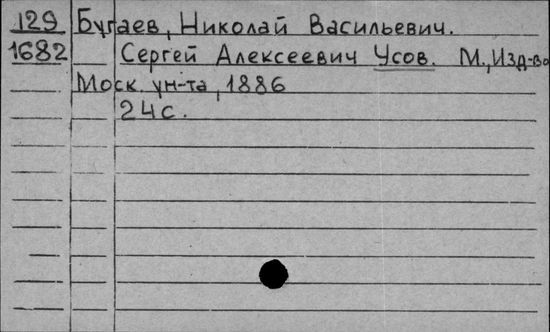 129 Бугаев, Николай Васильевич.
1682 Сергей Алексеевич Усов. М., Изд-во
Моск. ун-та, 1886
24 с.